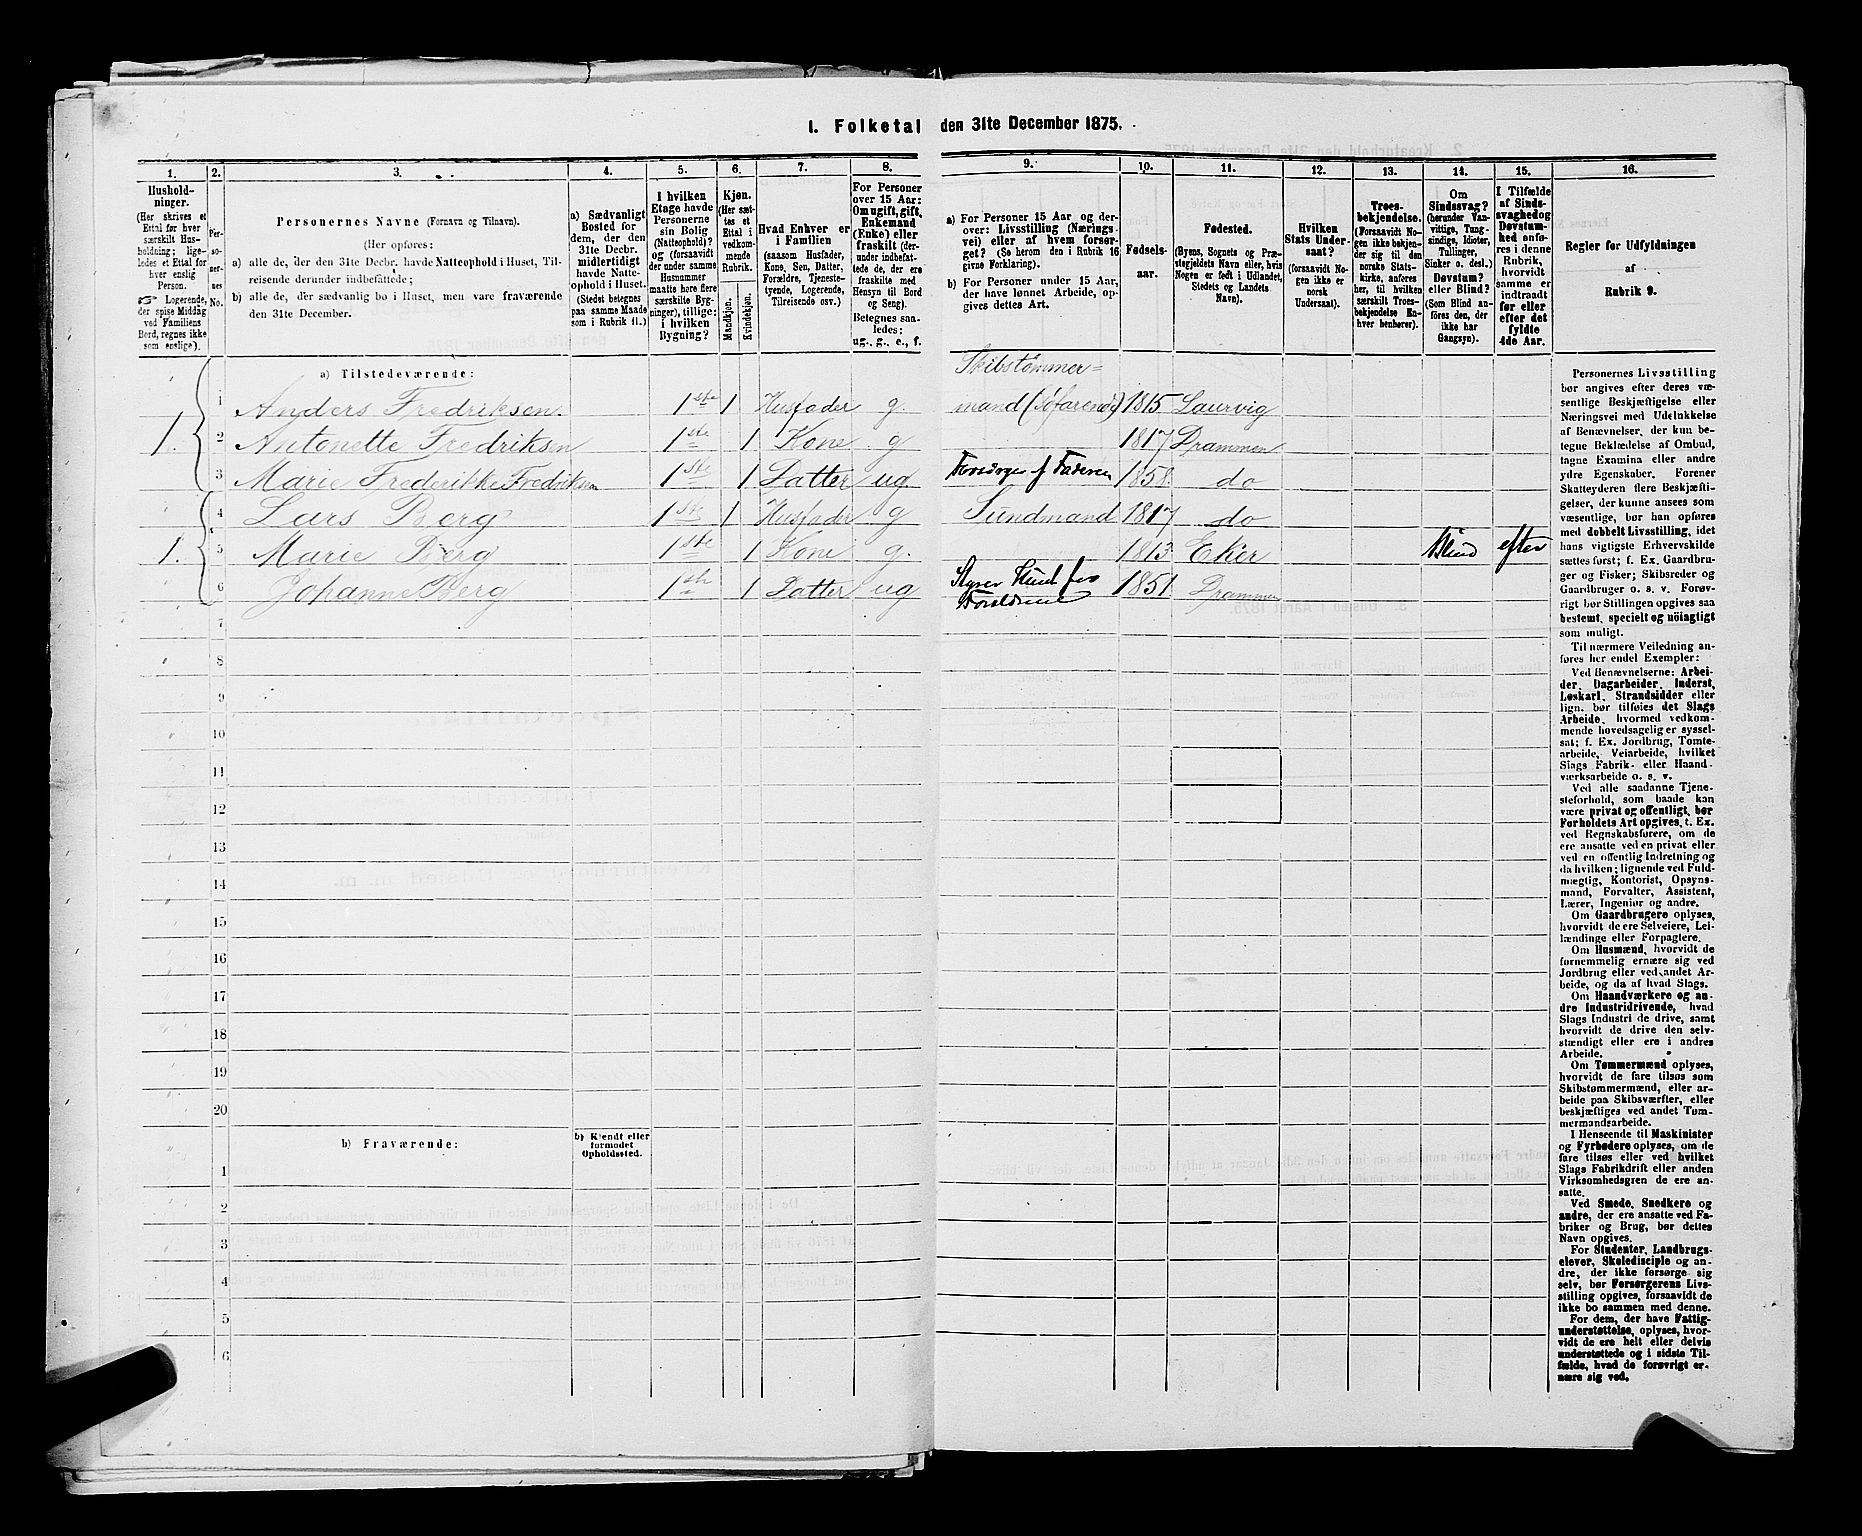 1. Folketal den 31te December 1875.
1.
2.
3.
4.
5.
6.
7.
8.
9.
10.
11.
12.
13.
14.
15.
16.
Hushold-
ninger.
(Her skrives et
Ettal før hver
særskilt Hus-
holdning; lige-
ledes et Ettal for
hver enslig
Person.
☞ Logerende,
der spise Middag
ved Familiens
Bord, regnes ikke
som enslige).
Per-
so-
ner-
nes
No.
Personernes Navne (Fornavn og Tilnavn).
(Her opføres:
a) alle de, der den 31te Decbr. havde Natteophold i Huset, Til-
reisende derunder indbefattede;
b) alle de, der sædvanlig bo i Huset, men vare fraværende
den 31te December.
a) Sædvanligt
Bosted for
dem, der den
31te Decbr.
midlertidigt
havde Natte-
ophold i Huset.
(Stedet betegnes
paa samme Maade
som i Rubrik 11.)
I hvilken
Etage havde
Personerne
sin Bolig
(Natteophold)?
og (forsaavidt
der under samme
Husnummer
maatte høre flere
særskilte Byg-
ninger), tillige:
i hvilken
Bygning?
Kjøn.
(Her sæt-
tes et
Ettal i
vedkom-
mende
Rubrik.
Mandkjøn.
Kvindekjøn.
Hvad Enhver er
i Familien
(saasom Husfader,
Kone, Søn, Datter,
Forældre, Tjeneste-
tyende, Logerende,
Tilreisende osv.)
For Personer
over 15 Aar:
Om ugift, gift,
Enkemand
(Enke) eller
fraskilt (der-
under indbefat-
tede de, der ere
fraskilte med
Hensyn til Bord
og Seng).
Betegnes saa-
ledes:
ug., g., e., f.
a) For Personer 15 Aar og der-
over: Livsstilling (Nærings-
vei) eller af hvem forsør-
get? (Se herom den i Rubrik 16
givne Forklaring).
b) For Personer under 15 Aar,
der have lønnet Arbeide, op-
gives dettes Art.
Fødsels-
aar.
Fødested.
(Byens, Sognets og Præ-
stegjeldets Navn eller, hvis
Nogen er født i Udlandet,
Stedets og Landets
Navn).
Hvilken
Stats Under-
saat?
(forsaavidt No-
gen ikke er
norsk
Undersaat).
Troes-
bekjendelse.
(Forsaavidt No-
gen ikke bekjen-
der sig til den
norske Stats-
kirke, anføres
her, til hvilken
særskilt Troes-
bekjendelse En-
hver henhører).
Om
Sindssvag?
(herunder Van-
vittige, Tung-
sindige, Idioter,
Tullinger,
Sinker o. desl.)
Døvstum?
eller Blind?
(Som Blind an-
føres den, der
ikke har
Gangsyn).
I Tilfælde
af Sinds-
svaghed og
Døvstum-
hed anfø-
res i denne
Rubrik,
hvorvidt
samme er
indtraadt
før eller
efter det
fyldte
4de Aar.
Regler for Udfyldningen
af
Rubrik 9.
a) Tilstedeværende:
Skibstømmer=
1. 1 Anders Fredriksen. 1ste 1 Husfader g. mand (søfarende) 1815 Laurvig
2 Antonette Fredriksen 1ste 1 Kone g 1817 Drammen
3 Marie Frederikke Fredriksen 1ste 1 Datter ug. Forsørges af Faderen 1858. do
1. 4 Lars Berg 1ste 1 Husfader g 1817 do
5 Marie Berg 1ste 1 Kone g. 1813 Eker Blind efter
6 Johanne Berg 1ste 1 Datter ug Styrer Huset for 1851 Drammen
Forældrene
7
8
9
10
11
12
13
14
15
16
17
18
19
20
b) Fraværende:
b) Kjendt eller
formodet
Opholdssted.
1
2
3
4
5
6
Personernes Livsstilling
bør angives efter deres væ-
sentlige Beskjæftigelse eller
Næringsvei med Udelukkelse
af Benævnelser, der kun be-
tegne Beklædelse af Ombud,
tagne Examina eller andre
ydre Egenskaber. Forener
Skatteyderen flere Beskjæfti-
gelser, der kunne ansees som
væsentlige, bør han opføres
med dobbelt Livsstilling, idet
hans vigtigste Erhvervskilde
sættes først; f. Ex. Gaardbru-
ger og Fisker; Skibsreder og
Gaardbruger o. s. v. Forøv-
rigt bør Stillingen opgives saa
bestemt, specielt og nöiagtigt
som muligt.
Til nærmere Veiledning an-
føres her endel Exempler:
Ved Benævnelserne: Arbei-
der, Dagarbeider, Inderst,
Løskarl, Strandsidder eller
lign. bør tilføies det Slags
Arbeide, hvormed vedkom-
mende hovedsagelig er syssel-
sat; f. Ex. Jordbrug, Tomte-
arbeide, Veiarbeide, hvilket
Slags Fabrik- eller Haand-
værksarbeide o. s. v.
Ved alle saadanne Tjene-
steforhold, som baade kan
være privat og offentligt, bør
Forholdets Art opgives, t. Ex.
ved Regnskabsførere, om de
ere ansatte ved en privat eller
ved en offentlig Indretning og
da hvilken; lignende ved Fuld-
mægtig, Kontorist, Opsyns-
mand, Forvalter, Assistent,
Lærer, Ingeniør og andre.
Om Gaardbrugere oplyses,
hvorvidt de ere Selveiere, Lei-
lændinge eller Forpagtere.
Om Husmænd, hvorvidt de
fornemmelig ernære sig ved
Jordbrug eller ved andet Ar-
beide, og da af hvad Slags.
Om Haandværkere og an-
dre Industridrivende, hvad
Slags Industri de drive, samt
hvorvidt de drive den selv-
stændigt eller ere i andres
Arbeide.
Om Tømmermænd oplyses,
hvorvidt de fare tilsøs som
Skibstømmermænd, eller ar-
beide paa Skibsværfter, eller
beskjæftiges ved andet Tøm-
mermandsarbeide.
I Henseende til Maskinister
og Fyrbødere oplyses, om de
fare tilsøs eller ved hvilket
Slags Fabrikdrift eller anden
Virksomhedsgren de ere an-
satte.
Ved Smede, Snedkere og
andre, der ere ansatte ved Fa-
briker og Brug, bør dettes
Navn opgives.
For Studenter, Landbrugs-
elever, Skoledisciple og an-
dre, der ikke forsørge sig
selv, bør Forsørgerens Livs-
stilling opgives, forsaavidt de
ikke bo sammen med denne.
For dem, der have Fattig-
understøttelse, oplyses, hvor-
vidt de ere helt eller delvis
understøttede og i sidste Til-
fælde, hvad de forøvrigt er-
nære sig ved.